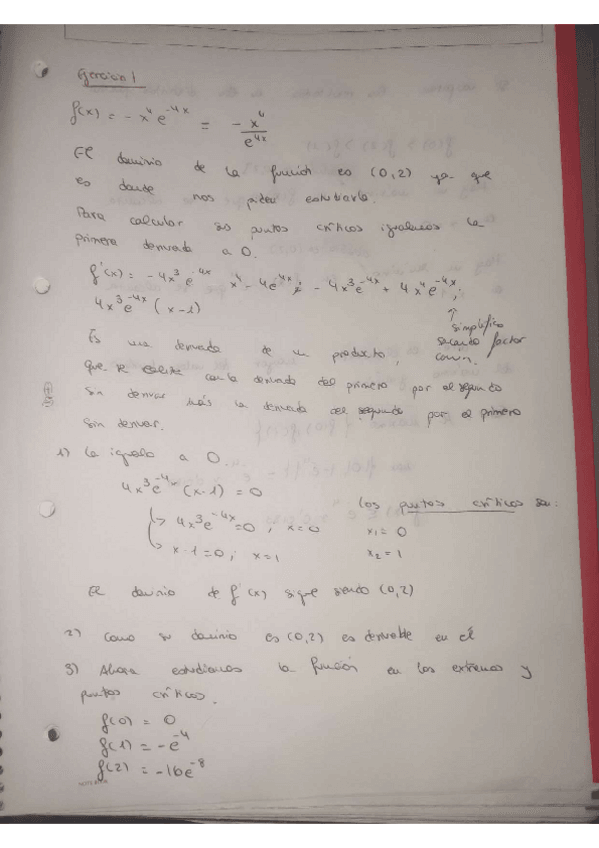 Ejercicio 1
f(x) = - x⁴ e^{-4x} = -x⁴/e^{4x}
El dominio de la función es (0,2) ya que
es donde nos piden estudiarla.
Para calcular sus puntos críticos igualamos la
primera derivada a 0.
f'(x) = -4x³e^{-4x} x⁴ - 4e^{-4x}; - 4x³e^{-4x} + 4x⁴e^{-4x};
4x³e^{-4x} (x-1)
↑ simplifico
sacando factor
común.
Es una derivada de un producto,
que se con la derivada del primero por el segundo
sin derivar más la derivada del segundo por el primero
sin derivar.
1) La igualo a 0.
4x³e^{-4x} (x-1) = 0
↳ 4x³e^{-4x} = 0, x=0
↳ x-1=0; x=1
Los puntos críticos son:
x₁ = 0
x₂ = 1
El dominio de f'(x) sigue siendo (0,2)
2) Como su dominio es (0,2) es derivable en él
3) Ahora estudiamos la función en los extremos y
puntos críticos.
f(0) = 0
f(1) = -e^{-4}
f(2) = -16e^{-8}